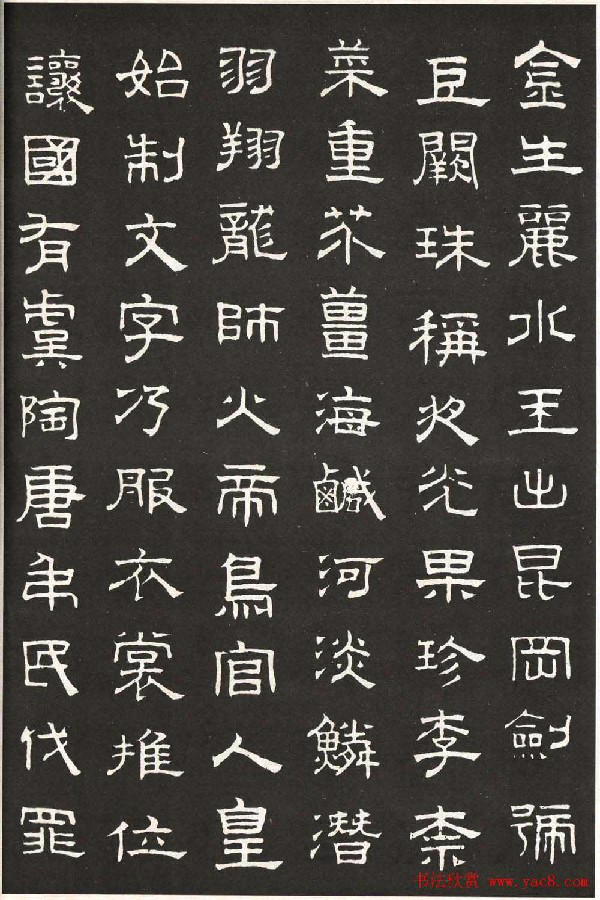 金生麗水玉出昆岡劍號
巨闕珠稱夜光果珍李柰
菜重芥薑海鹹河淡鱗潛
羽翔龍師火帝鳥官人皇
始制文字乃服衣裳推位
讓國有虞陶唐弔民伐罪
书法欣赏 www.yac8.com